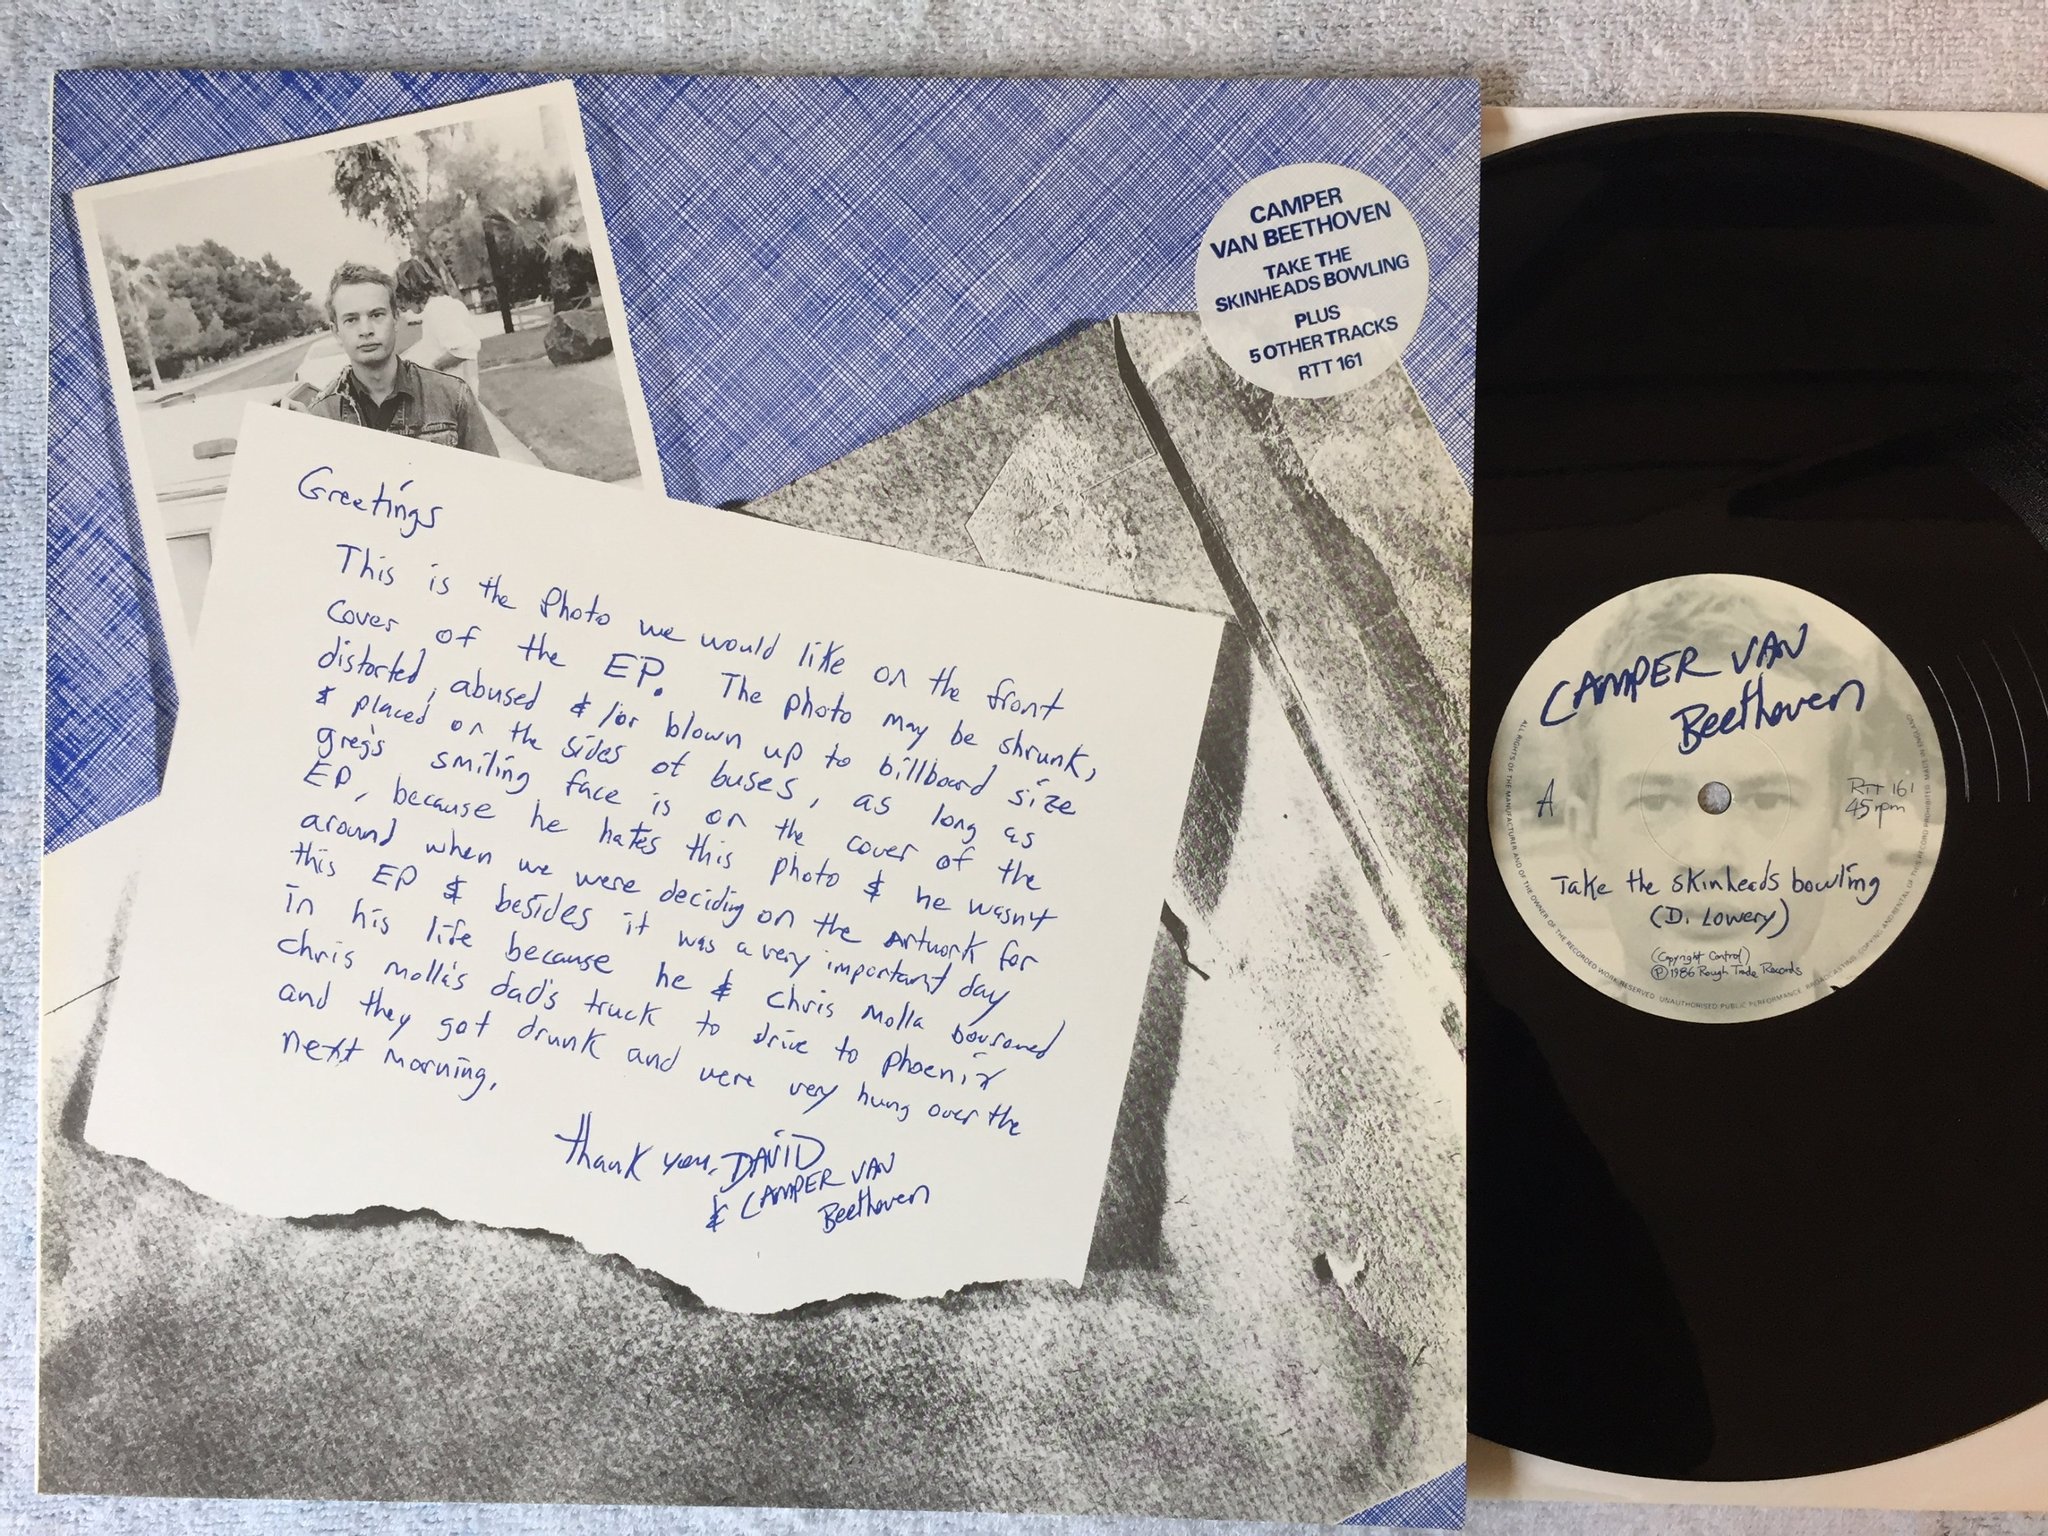 CAMPER
VAN BEETHOVEN
TAKE THE
SKINHEADS BOWLING
PLUS
5 OTHER TRACKS
RTT 161
Greetings
This is the photo we would like on the front
cover of the EP. The photo may be shrunk,
distorted, abused & /or blown up to billboard size
& placed on the sides of buses, as long as
greg's smiling face is on the cover of the
EP, because he hates this photo & he wasn't
around when we were deciding on the artwork for
this EP & besides it was a very important day
in his life because he & chris molla borrowed
chris molla's dad's truck to drive to phoenix
and they got drunk and were very hung over the
next morning.
thank you, DAVID
& CAMPER VAN
Beethoven
CAMPER VAN
Beethoven
A
RTT 161
45rpm
Take the skinheads bowling
(D. Lowery)
(Copyright Control)
Ⓟ 1986 Rough Trade Records
ALL RIGHTS OF THE MANUFACTURER AND OF THE OWNER OF THE RECORDED WORK RESERVED. UNAUTHORISED PUBLIC PERFORMANCE, BROADCASTING, COPYING AND RENTAL OF THIS RECORD PROHIBITED. MADE IN ENGLAND